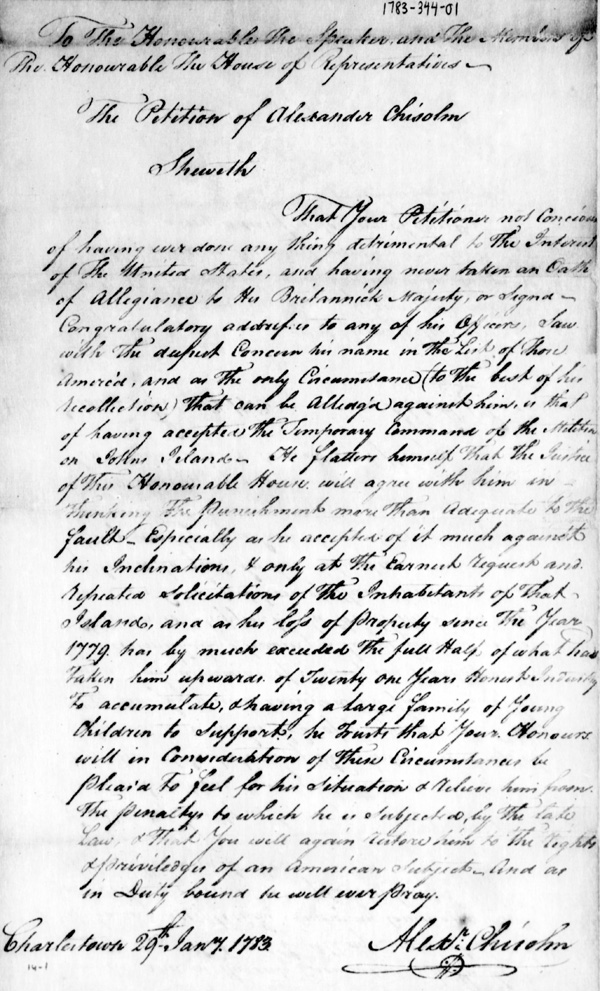 1783-344-01
To The Honourable The Speaker, and The Members of
The Honourable The House of Representatives —
The Petition of Alexander Chisolm
Sheweth
That Your Petitioner not Concious
of having ever done any thing detrimental to The Interest
of The United States, and having never taken an Oath
of Allegiance to His Britannick Majesty, or Signd —
Congratulatory addresses to any of his Officers, Saw
with The deepest Concern his name in The List of Those
Amerc'd, and as The only Circumstance (to The best of his
recollection) That can be Alledg'd against him, is that
of having accepted the Temporary Command of the Militia
on Johns Island — He flatters himself That the Justice
of This Honourable House, will agree with him in —
Thinking The Punishment more Than Adequate to The
fault — Especially as he accepted of it much against
his Inclinations, & only at The Earnest request and
repeated Solicitations of The Inhabitants of That
Island, and as his loss of Property since The Year
1779 has by much exceeded The full Half of what has
taken him upwards of Twenty one Years Honest Industry
To accumulate, & having a large family of Young
Children to Support, he trusts that Your Honours
will in Consideration of These Circumstances be
Pleas'd To feel for his Situation & relieve him from
The Penaltys to which he is Subjected, by The late
Law, & That You will again restore him to The Rights
& priviledges of an American Subject — And as
in Duty bound he will ever Pray.
Charlestown 29th Jany. 1783
Alexr. Chisolm
14-1